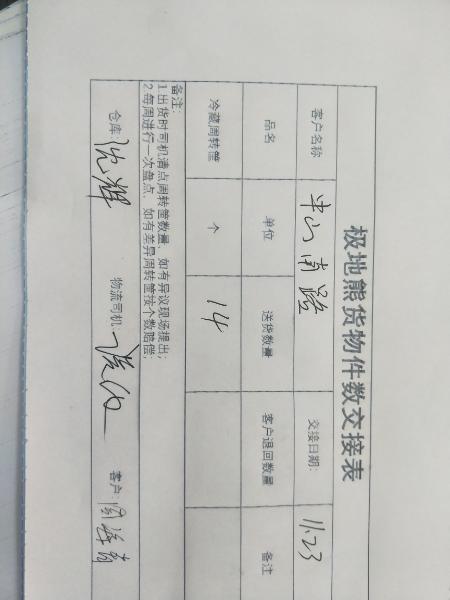 极地熊货物件数交接表
客户名称 半山南路 交接日期: 11.23
品名 单位 送货数量 客户退回数量 备注
冷藏周转筐 个 14
备注:
1.出货时司机清点周转筐数量，如有异议现场提出;
2.每周进行一次盘点，如有差异周转筐按个数赔偿;
仓库: 沈辉 物流司机: 客户: 周海